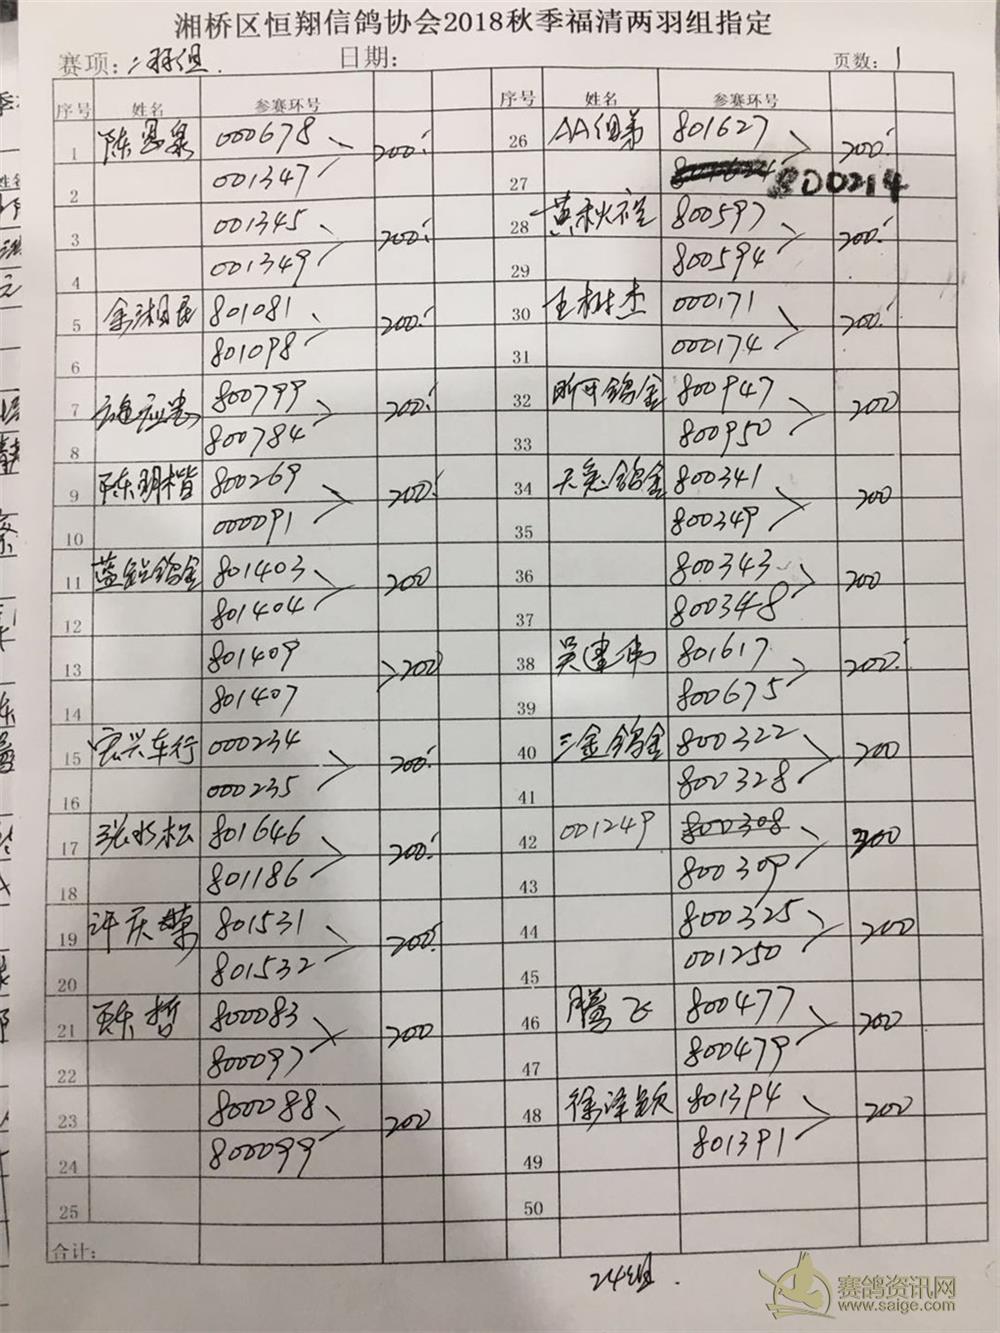 湘桥区恒翔信鸽协会2018秋季福清两羽组指定
赛项：二羽组. 日期： 页数：1
序号 姓名 参赛环号 序号 姓名 参赛环号
1 陈恩泉 000678 200 26 AA组弟 801627 200
2 001347 27 800214
3 001345 200 28 黄秋 800597 200
4 001349 29 800594
5 余湘民 801081 200 30 王树杰 000171 200
6 801098 31 000174
7 800799 200 32 昕开鸽舍 800947 200
8 800784 33 800950
9 陈明楷 800269 200 34 天 鸽舍 800341 200
10 000091 35 800349
11 蓝 鸽舍 801403 200 36 800343 200
12 801404 37 800348
13 801409 200 38 吴建伟 801617 200
14 801407 39 800675
15 宏兴车行 000234 200 40 三金鸽舍 800322 200
16 000235 41 800328
17 张水松 801646 200 42 001249 800308 200
18 801186 43 800309
19 许庆荣 801531 200 44 800325 200
20 801532 45 001250
21 陈哲 800083 200 46 腾飞 800477 200
22 800097 47 800479
23 800088 200 48 徐泽颖 801394 200
24 800099 49 801391
25 50
合计：
24组.
赛鸽资讯网
www.saige.com